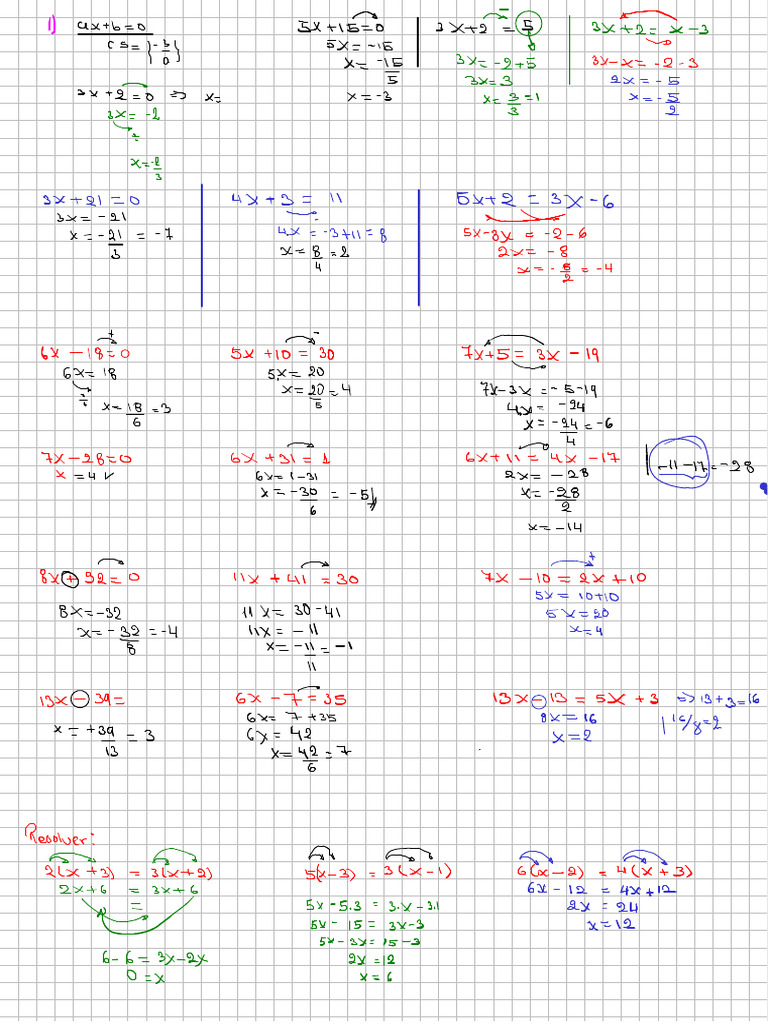 1) ax+b=0
CS={-b/a}
3x+2=0 => x=
3x=-2
÷
x=-2/3
5x+15=0
5x=-15
x=-15/5
x=-3
-
3x+2=5
3x=-2+5
3x=3
x=3/3=1
3x+2=x-3
3x-x=-2-3
2x=-5
x=-5/2
3x+21=0
3x=-21
x=-21/3=-7
4x+3=11
-
4x=-3+11=8
x=8/4=2
5x+2=3x-6
5x-3x=-2-6
2x=-8
x=-8/2=-4
+
6x-18=0
6x=18
÷
x=18/6=3
-
5x+10=30
5x=20
x=20/5=4
7x+5=3x-19
7x-3x=-5-19
4x=-24
x=-24/4=-6
7x-28=0
x=4
6x+31=1
6x=1-31
x=-30/6=-5
6x+11=4x-17
2x=-28
x=-28/2
x=-14
-11-17=-28
8x+32=0
8x=-32
x=-32/8=-4
11x+41=30
11x=30-41
11x=-11
x=-11/11=-1
+
7x-10=2x+10
5x=10+10
5x=20
x=4
13x-39=
x=+39/13=3
6x-7=35
6x=7+35
6x=42
x=42/6=7
13x-13=5x+3 => 13+3=16
8x=16
16/8=2
x=2
Resolver:
2(x+3)=3(x+2)
2x+6=3x+6
=
6-6=3x-2x
0=x
5(x-3)=3(x-1)
5x-5.3=3.x-3.1
5x-15=3x-3
5x-3x=15-3
2x=12
x=6
6(x-2)=4(x+3)
6x-12=4x+12
2x=24
x=12